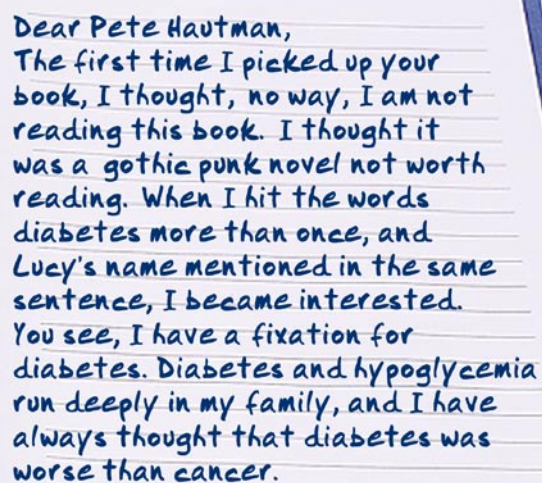 Dear Pete Hautman,
The first time I picked up your
book, I thought, no way, I am not
reading this book. I thought it
was a gothic punk novel not worth
reading. When I hit the words
diabetes more than once, and
Lucy's name mentioned in the same
sentence, I became interested.
You see, I have a fixation for
diabetes. Diabetes and hypoglycemia
run deeply in my family, and I have
always thought that diabetes was
worse than cancer.